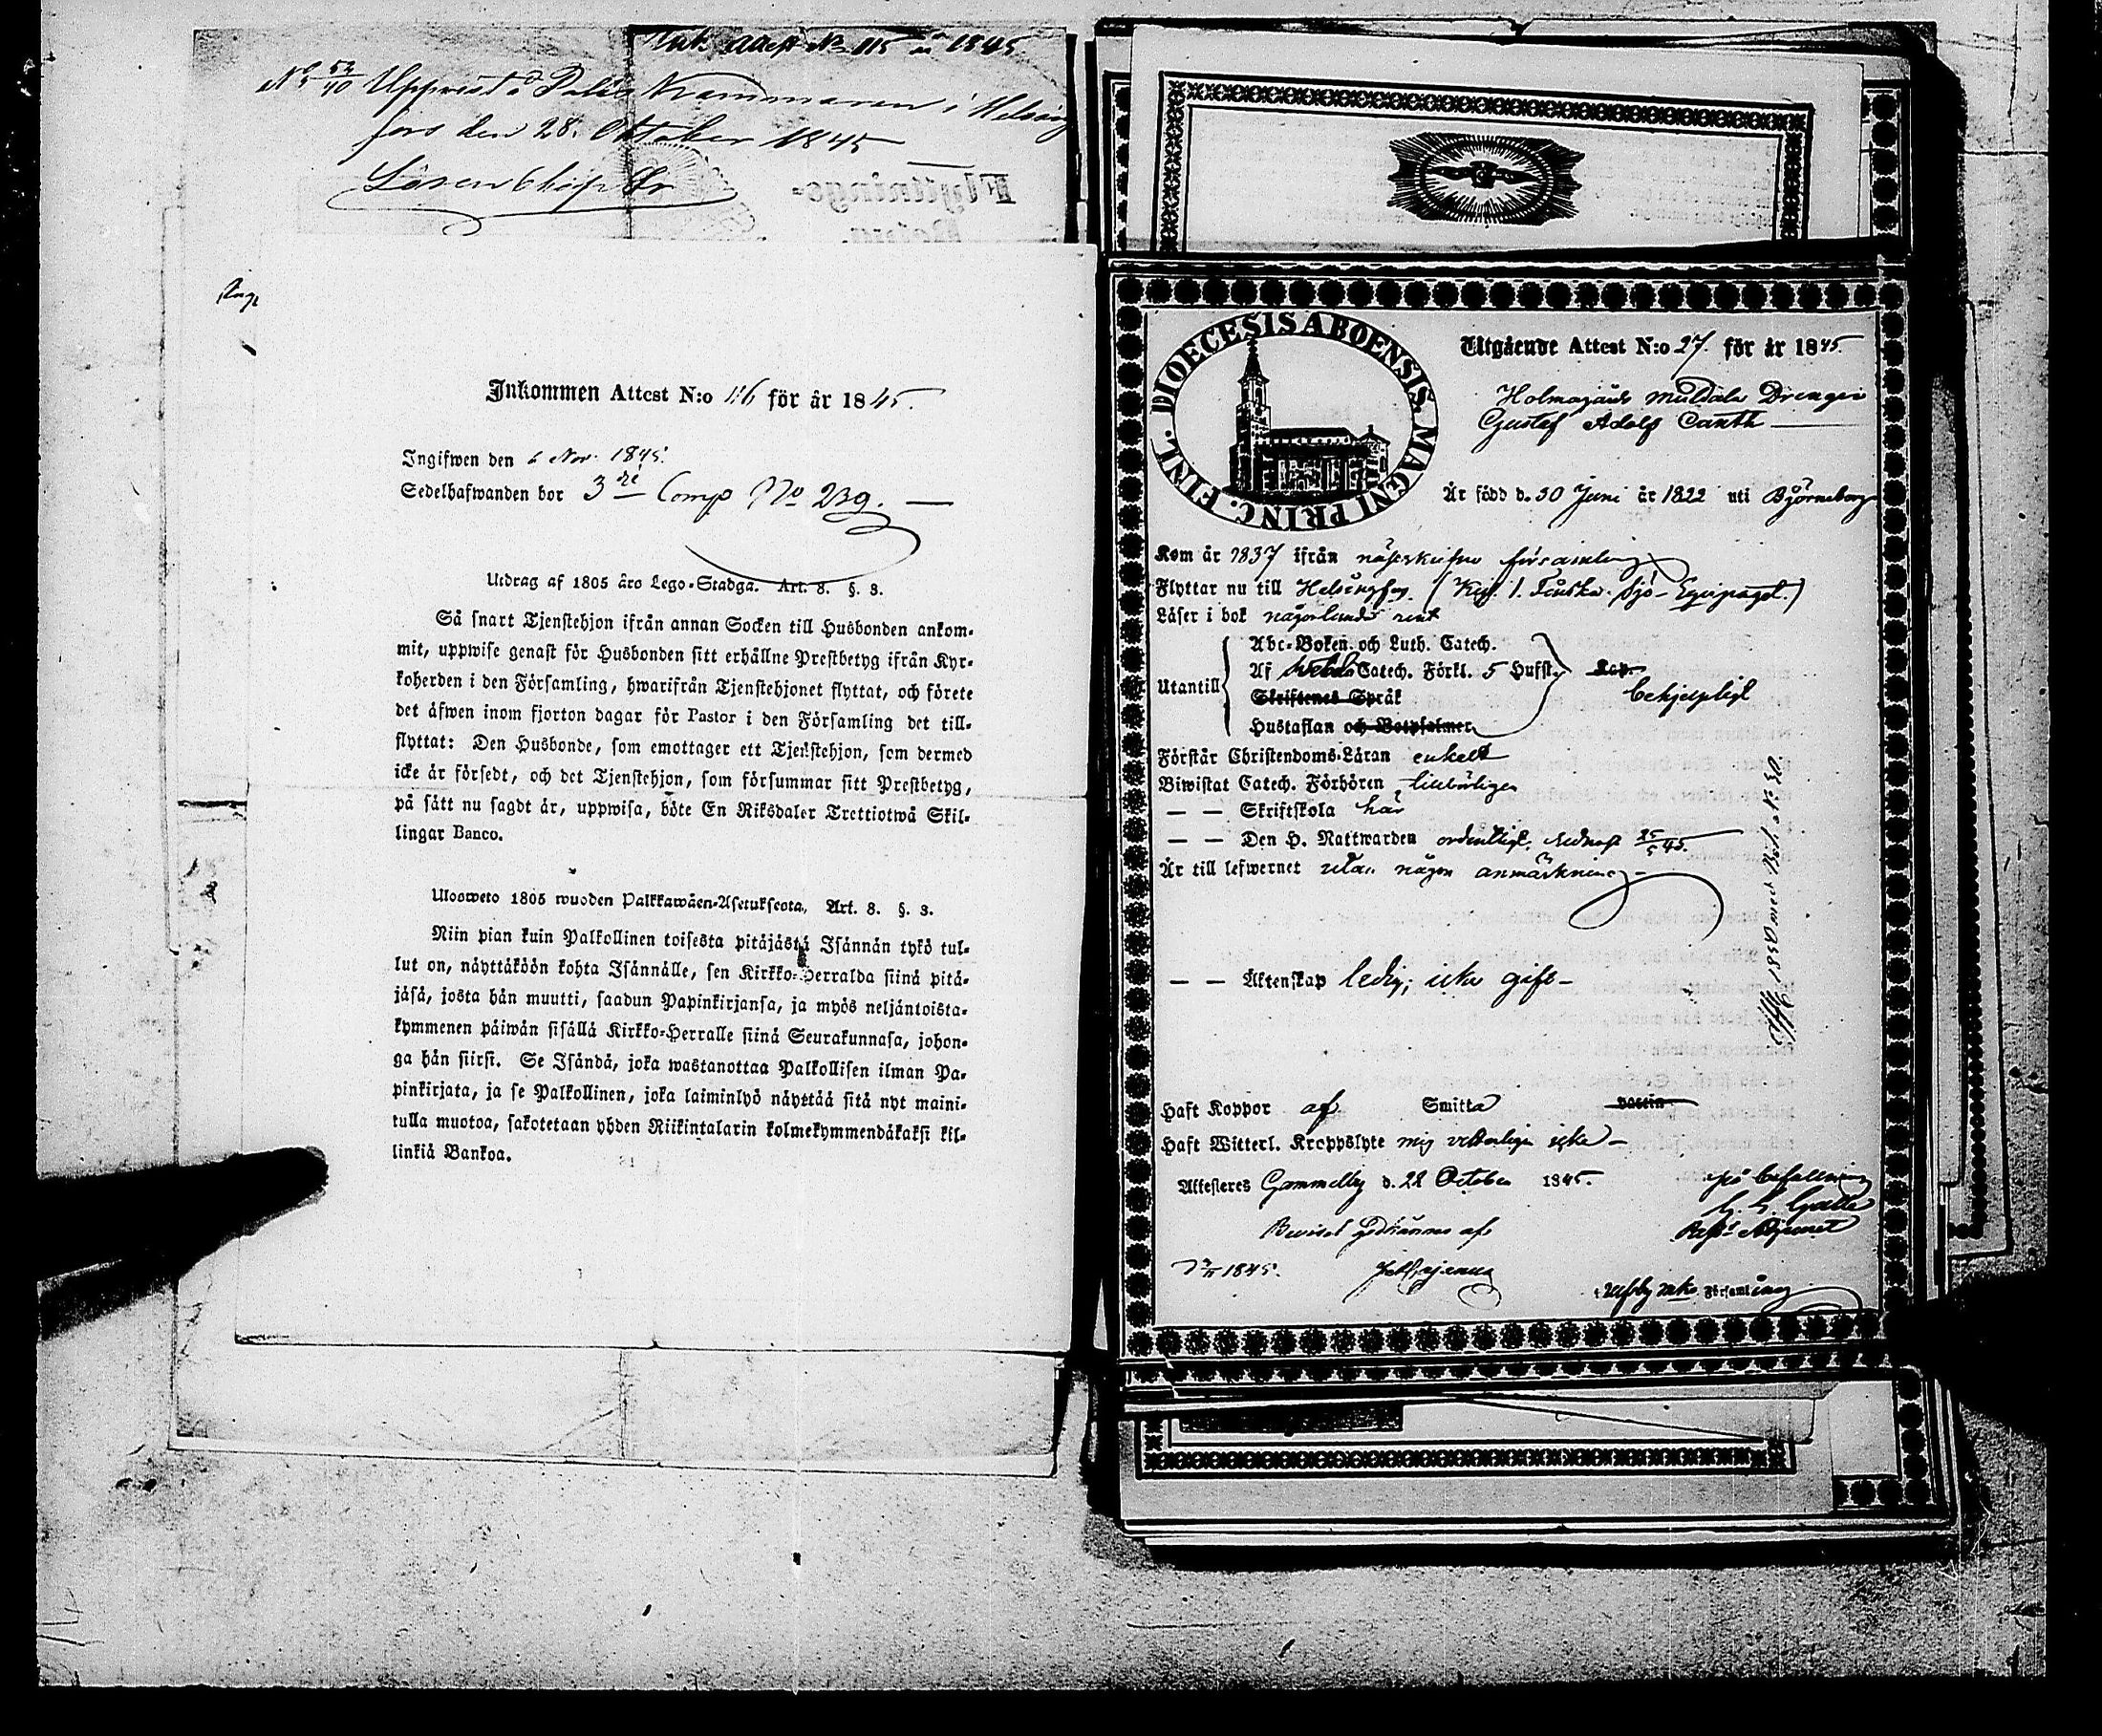 Ink. Attest No 115 år 1845
No 52/40 Uppvist å Polis Kammaren i Helsing
fors den 28. Oktober 1845
Lösen 6 kop Sr
Flyttnings-
Inkommen Attest N:o 116 för år 1845.
Ingifwen den 6 Nov. 1845.
Sedelhafwanden bor 3die Comp No 239. —
Utdrag af 1805 års Lego-Stadga. Art. 8. §. 3.
Så snart Tjenstehjon ifrån annan Socken till Husbonden ankom-
mit, uppwise genast för Husbonden sitt erhållne Prestbetyg ifrån Kyr-
koherden i den Församling, hwarifrån Tjenstehjonet flyttat, och förete
det äfwen inom fjorton dagar för Pastor i den Församling det till-
flyttat: Den Husbonde, som emottager ett Tjenstehjon, som dermed
icke är försedt, och det Tjenstehjon, som försummar sitt Prestbetyg,
på sätt nu sagdt är, uppwisa, böte En Riksdaler Trettiotwå Skil-
lingar Banco.
Ulosweto 1805 wuoden Palkkawäen-Asetuksesta, Art. 8. §. 3.
Niin pian kuin Palkollinen toisesta pitäjästä Isännän tykö tul-
lut on, näyttäköön kohta Isännälle, sen Kirkko-Herralda siinä pitä-
jäsä, josta hän muutti, saadun Papinkirjansa, ja myös neljäntoista-
kymmenen päiwän sisällä Kirkko-Herralle siinä Seurakunnasa, johon-
ga hän siirsi. Se Isändä, joka wastanottaa Palkollisen ilman Pa-
pinkirjata, ja se Palkollinen, joka laiminlyö näyttää sitä nyt maini-
tulla muotoa, sakotetaan yhden Riikintalarin kolmekymmendäkaksi kil-
linkiä Bankoa.
DIOECESIS ABOENSIS. MAGNI PRINC. FINL.
Utgående Attest N:o 27. för år 1845.
Holmagårds Drengen
Gustaf Adolf Canth —
Är född d. 30 Juni år 1822 uti Björneborg
Kom år 1837 ifrån församling
Flyttar nu till Helsingfors (Kejs. 1. Finska Sjö-Equipaget.)
Läser i bok någorlunda rent
Utantill
Abc-Boken och Luth. Catech.
Af Catech. Förkl. 5 Hufst.
Skriftenes Språk
Hustaflan och Botpsalmer
behjelpligt
Förstår Christendoms-Läran enkelt
Biwistat Catech. Förhören tillbörligen
— — Skriftskola här
— — Den H. Nattwarden ordentligt, sednast 25/5 45.
Är till lefwernet utan någon anmärkning —
— — Äktenskap ledig; icke gift —
Haft Koppor af Smitta vaccin
Haft Witterl. Kroppslyte mig vetterligen icke —
Attesteras Gammelby d. 22 October 1845.
på befallning
Adjunct
1845.
Ulfsby Församling
1850 med Bet. N: 30.